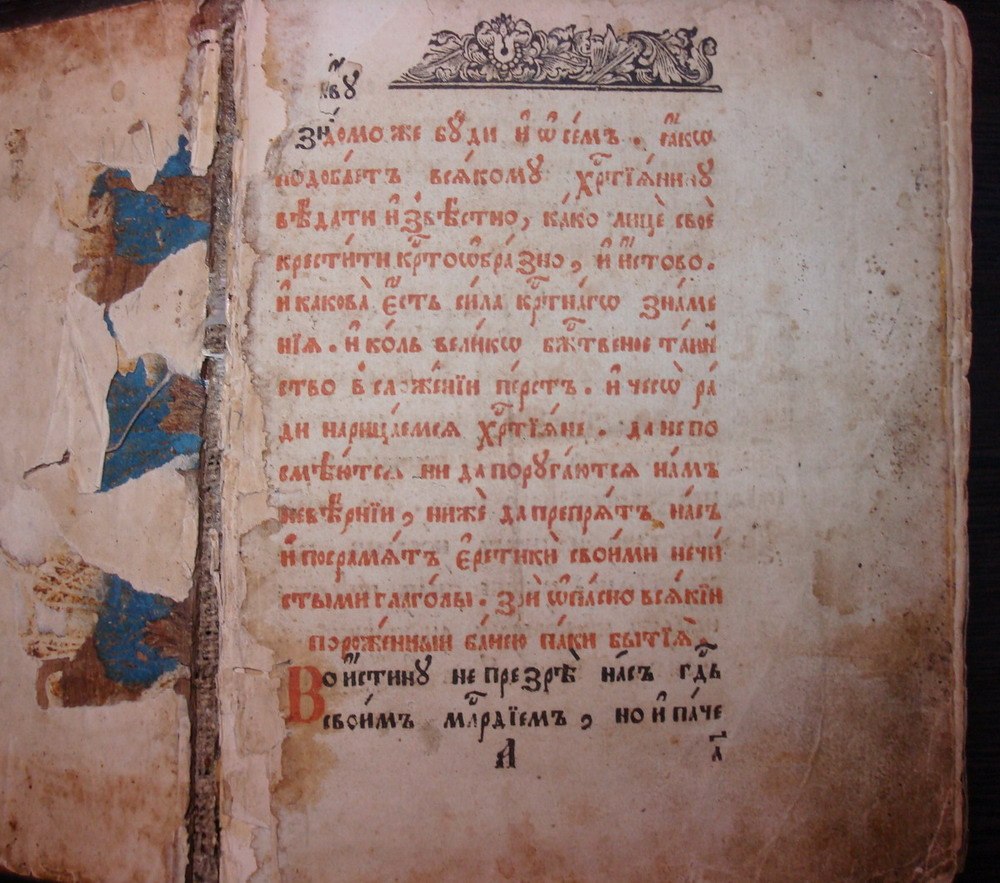 к҃в ꙋ
знⷣомо же бꙋ́ди и҆ ѡ҆ се́мъ . ꙗ҆́кѡ
подоба́етъ всѧ́комꙋ хрⷭ҇тїѧ́нинꙋ
вѣ́дати и҆звѣ́стно , ка́ко лицѐ своѐ
крести́ти крⷭ҇тоѡбра́зно , и҆ и҆́стово .
и҆ каковà є҆́сть си́ла крⷭ҇тна́гѡ зна́ме
нїѧ . и҆ ко́ль вели́кѡ бж҃твеное та́ин
ство в сложе́нїи пе́рстъ . и҆ чесѡ̀ ра́
ди нарица́емсѧ хрⷭ҇тїѧ́не . да не по
смѣю́тсѧ ни да порꙋга́ютсѧ на́мъ
невѣ́рнїи , нижѐ да препрѧ́тъ на́съ
и҆ посрамѧ́тъ є҆ретикѝ свои́ми нечи́
стыми глаго́лы . зрѝ ѡ҆па́сно всѧ́кїи
порожде́нныи ба́нею па́ки бытїѧ̀ .
Вои́стинꙋ не презрѣ̀ на́съ гдⷭ҇ь
свои́мъ млⷭ҇рдїемъ , но и҆ па́че
А҃ ѧ҆̀